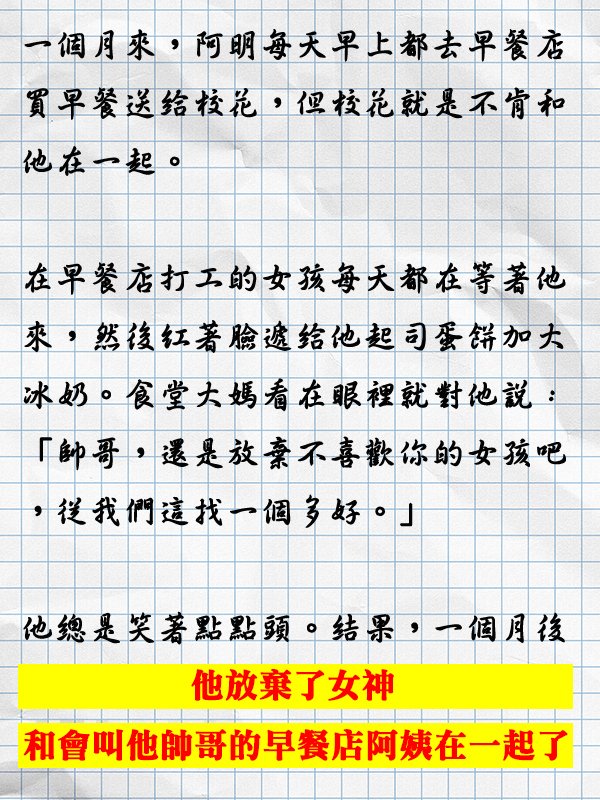 一個月來，阿明每天早上都去早餐店
買早餐送給校花，但校花就是不肯和
他在一起。
在早餐店打工的女孩每天都在等著他
來，然後紅著臉遞給他起司蛋餅加大
冰奶。食堂大媽看在眼裡就對他說：
「帥哥，還是放棄不喜歡你的女孩吧
，從我們這找一個多好。」
他總是笑著點點頭。結果，一個月後
他放棄了女神
和會叫他帥哥的早餐店阿姨在一起了